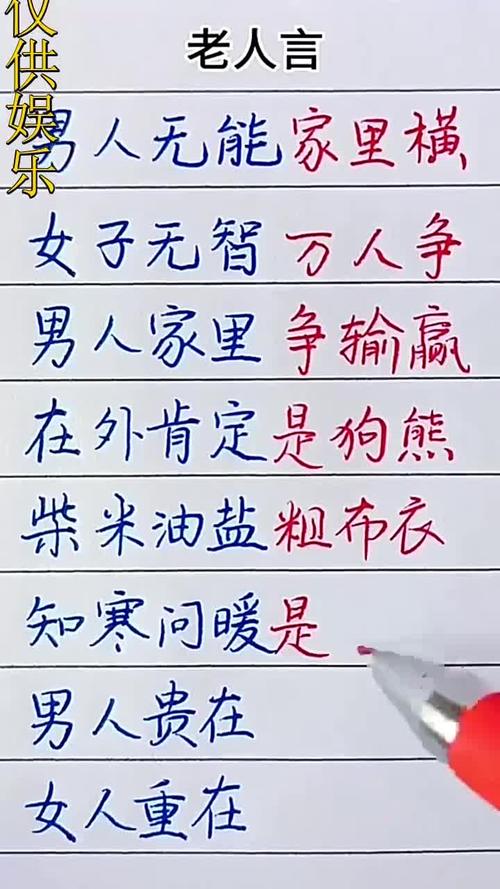 仅供娱乐
老人言
男人无能家里横
女子无智万人争
男人家里争输赢
在外肯定是狗熊
柴米油盐粗布衣
知寒问暖是
男人贵在
女人重在